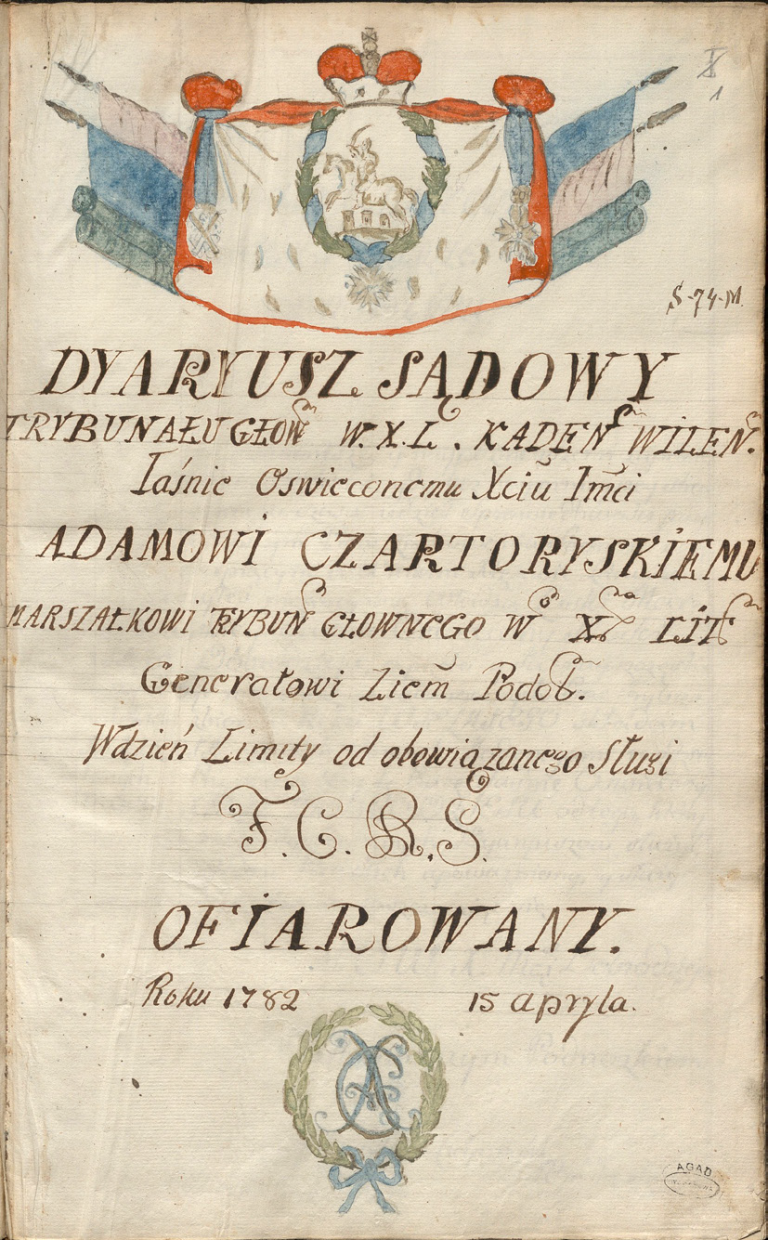 I
1
S-74-M.
DYARYUSZ SĄDOWY
TRYBUNAŁU GŁOW W.X.L. KADEN WILEN.
Iaśnie Oswieconemu Xciu Imci
ADAMOWI CZARTORYSKIEMU
MARSZAŁKOWI TRYBUN GŁOWNEGO Wo Xa LIT
Generałowi Ziem Podol.
Wdzień Limity od obowiązanego Sługi
F.C.R.S.
OFIAROWANY.
Roku 1782 15 apryla.
AGAD